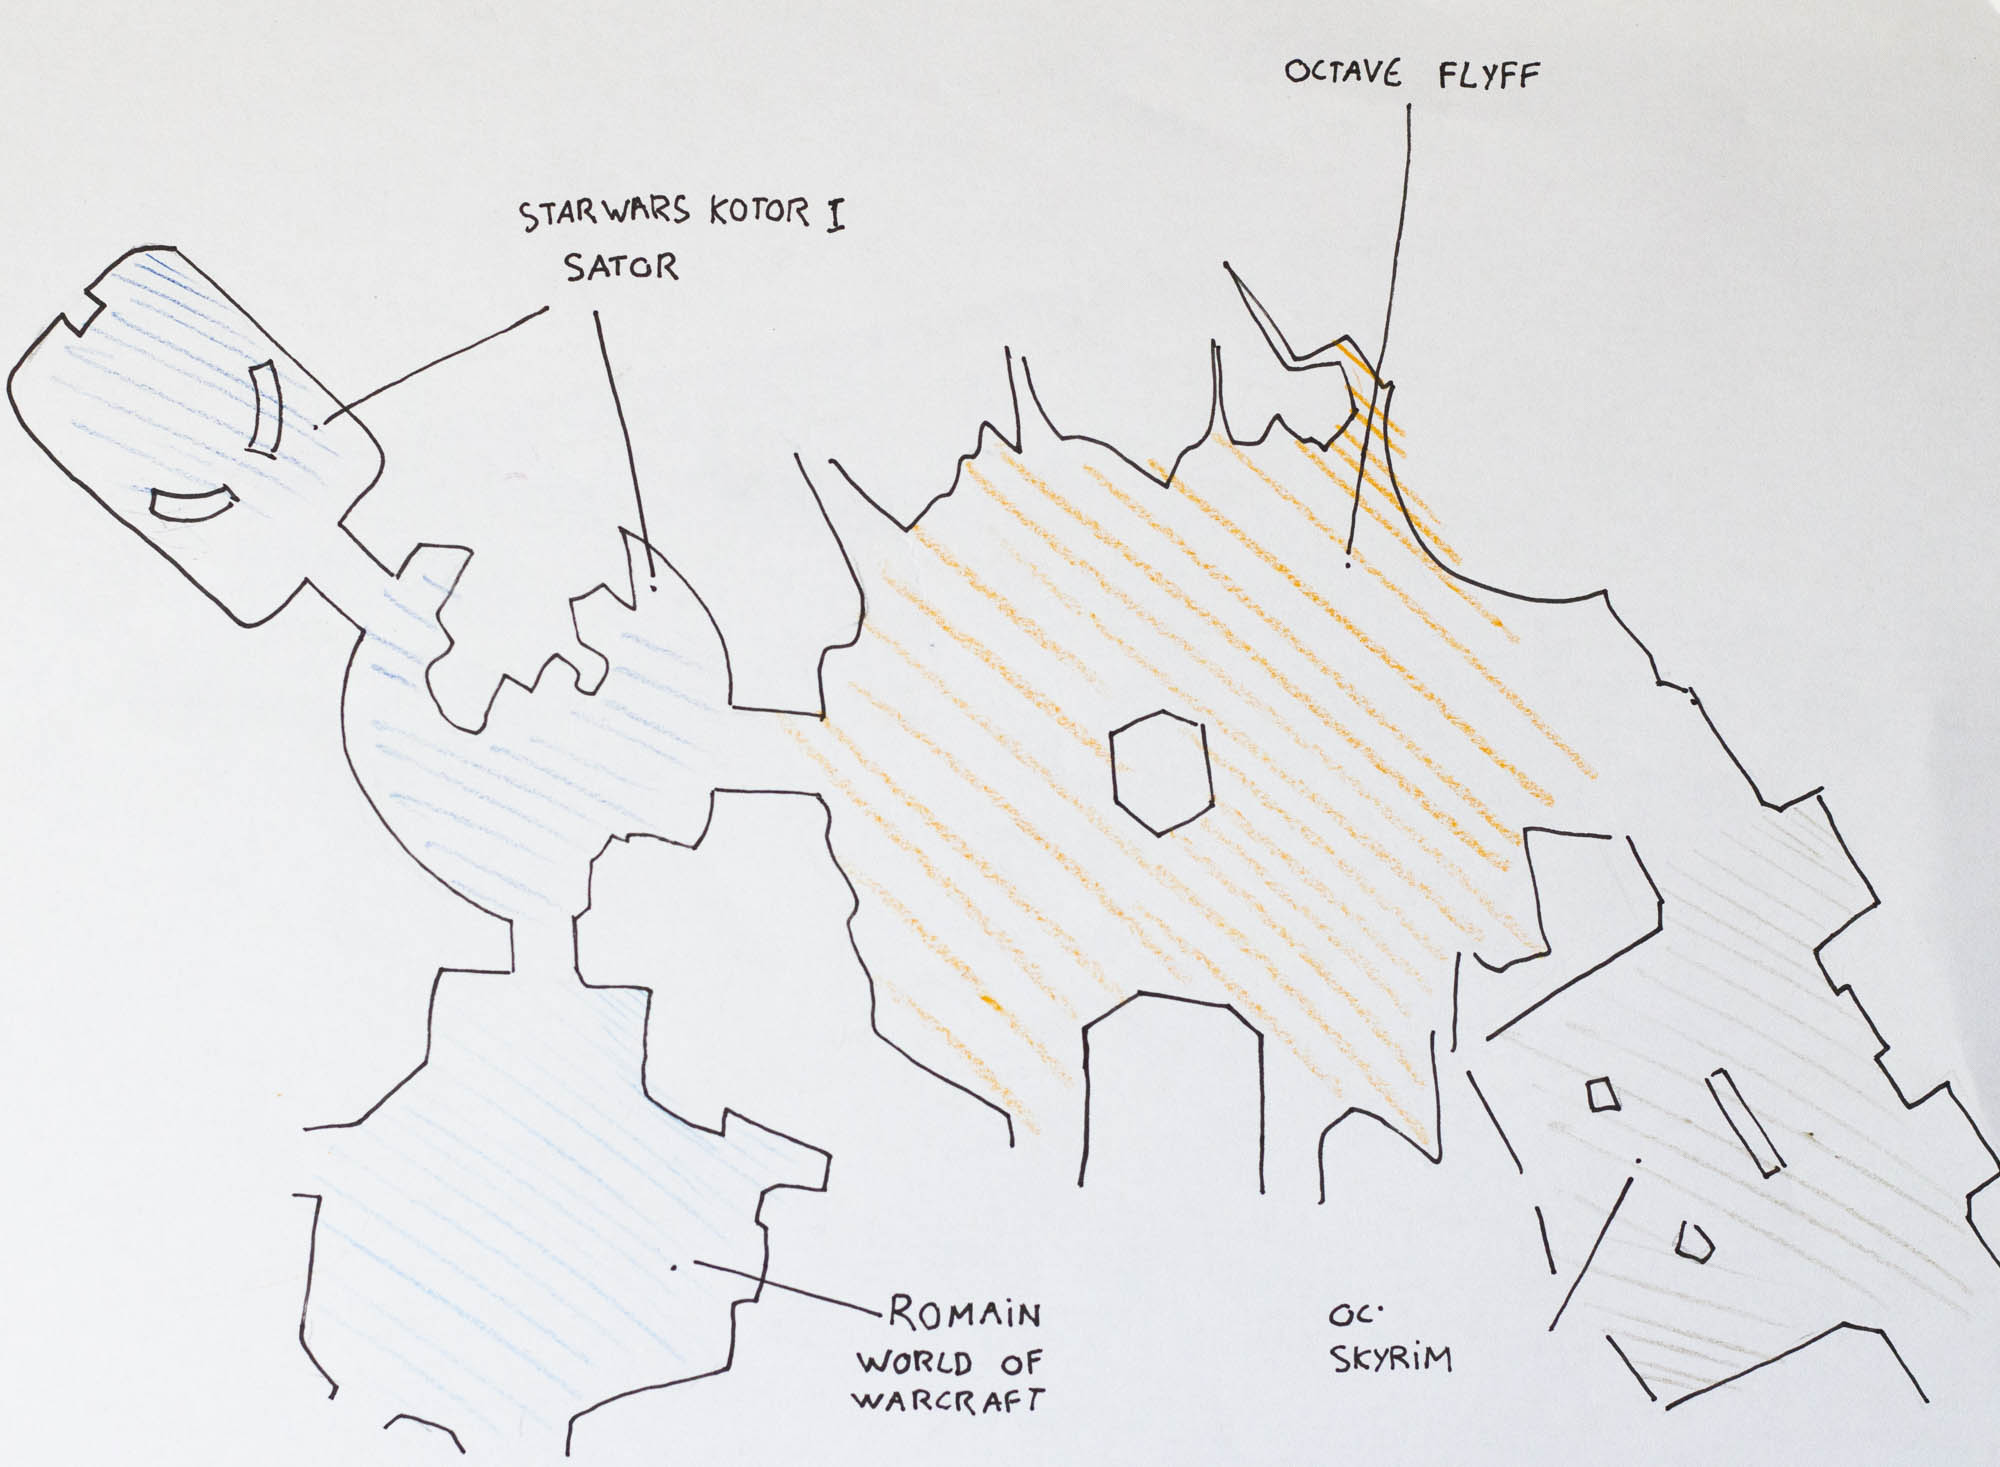 OCTAVE FLYFF
STARWARS KOTOR I
SATOR
ROMAiN
WORLD OF
WARCRAFT
OC.
SKYRiM